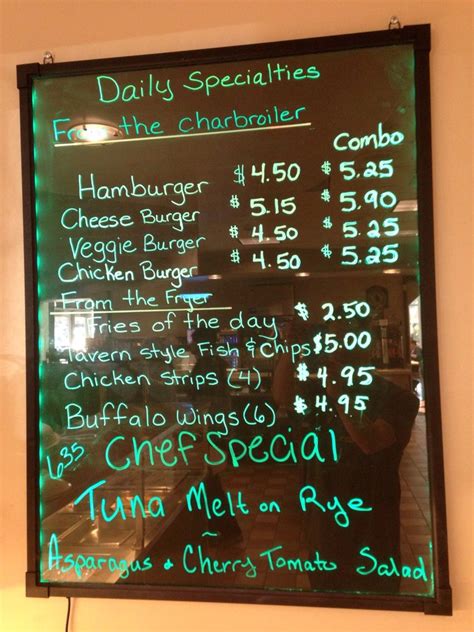 Daily Specialties
From the Charbroiler
Combo
Hamburger $4.50 $5.25
Cheese Burger $5.15 $5.90
Veggie Burger $4.50 $5.25
Chicken Burger $4.50 $5.25
From the Fryer
Fries of the day $2.50
Tavern style Fish & Chips $5.00
Chicken Strips (4) $4.95
Buffalo Wings (6) $4.95
6.35 Chef Special
Tuna Melt on Rye
~
Asparagus & Cherry Tomato Salad